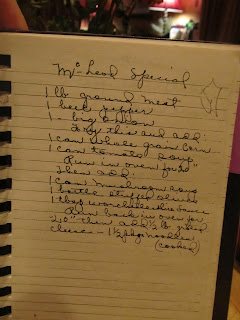 McLeod Special
1 lb ground meat
1 bell pepper
1 - big onion
Fry this and add:
1 can whole grain corn
1 can tomato soup
Run in oven
Then add:
1 can mushroom soup
1 bottle stuffed olives
1 tbsp worchestershire sauce
Run back in oven for
20" then add 1/2 lb
cheese - 1 1/2 pkgs noodles
(cooked)